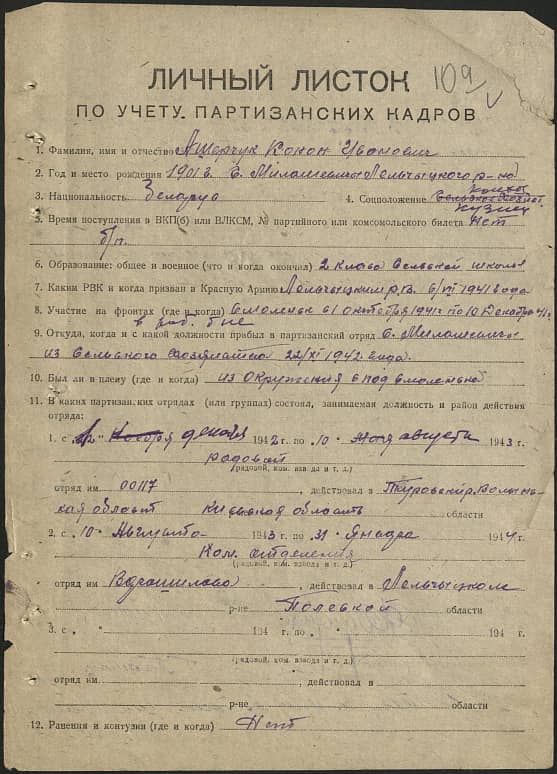 109 v
ЛИЧНЫЙ ЛИСТОК
ПО УЧЕТУ ПАРТИЗАНСКИХ КАДРОВ
1. Фамилия, имя и отчество Ашерчук Конон Иванович
2. Год и место рождения 1901 г. с. Милошевичы Лельчыцкого р-на
3. Национальность Беларус 4. Соцположение
кузнец
5. Время поступления в ВКП(б) или ВЛКСМ, № партийного или комсомольского билета Нет
б/п.
6. Образование: общее и военное (что и когда окончил) 2 класа сельской школы
7. Каким РВК и когда призван в Красную Армию Лельчыцким р.в. 6/VII 1941 года
8. Участие на фронтах (где и когда) Смоленск с 1 октября 1941 г по 10 Декабря 41 г.
9. Откуда, когда и с какой должности прибыл в партизанский отряд с. Милошевичы
из сельского 22/XI 1942 года.
10. Был ли в плену (где и когда) из окружения с под Смоленска
11. В каких партизанских отрядах (или группах) состоял, занимаемая должность и район действия
отряда:
1. с „12" Ноября декабря 1942 г. по „10" Мая августа 1943 г.
рядовой
(рядовой, ком. взвода и т. д.)
отряд им. 00117, действовал в Туровский р. Волынь-
ская область Киевская область области
2. с „10" Августа 1943 г. по „31" Января 1944 г.
Ком. отделения
(рядовой, ком. взвода и т. д.)
отряд им Ворошилова, действовал в Лельчыцком
р-не Полеской области
3. с „ " 194 г. по „ " 194 г.
(рядовой, ком. взвода и т. д.)
отряд им., действовал в
р-не области
12. Ранения и контузии (где и когда) Нет